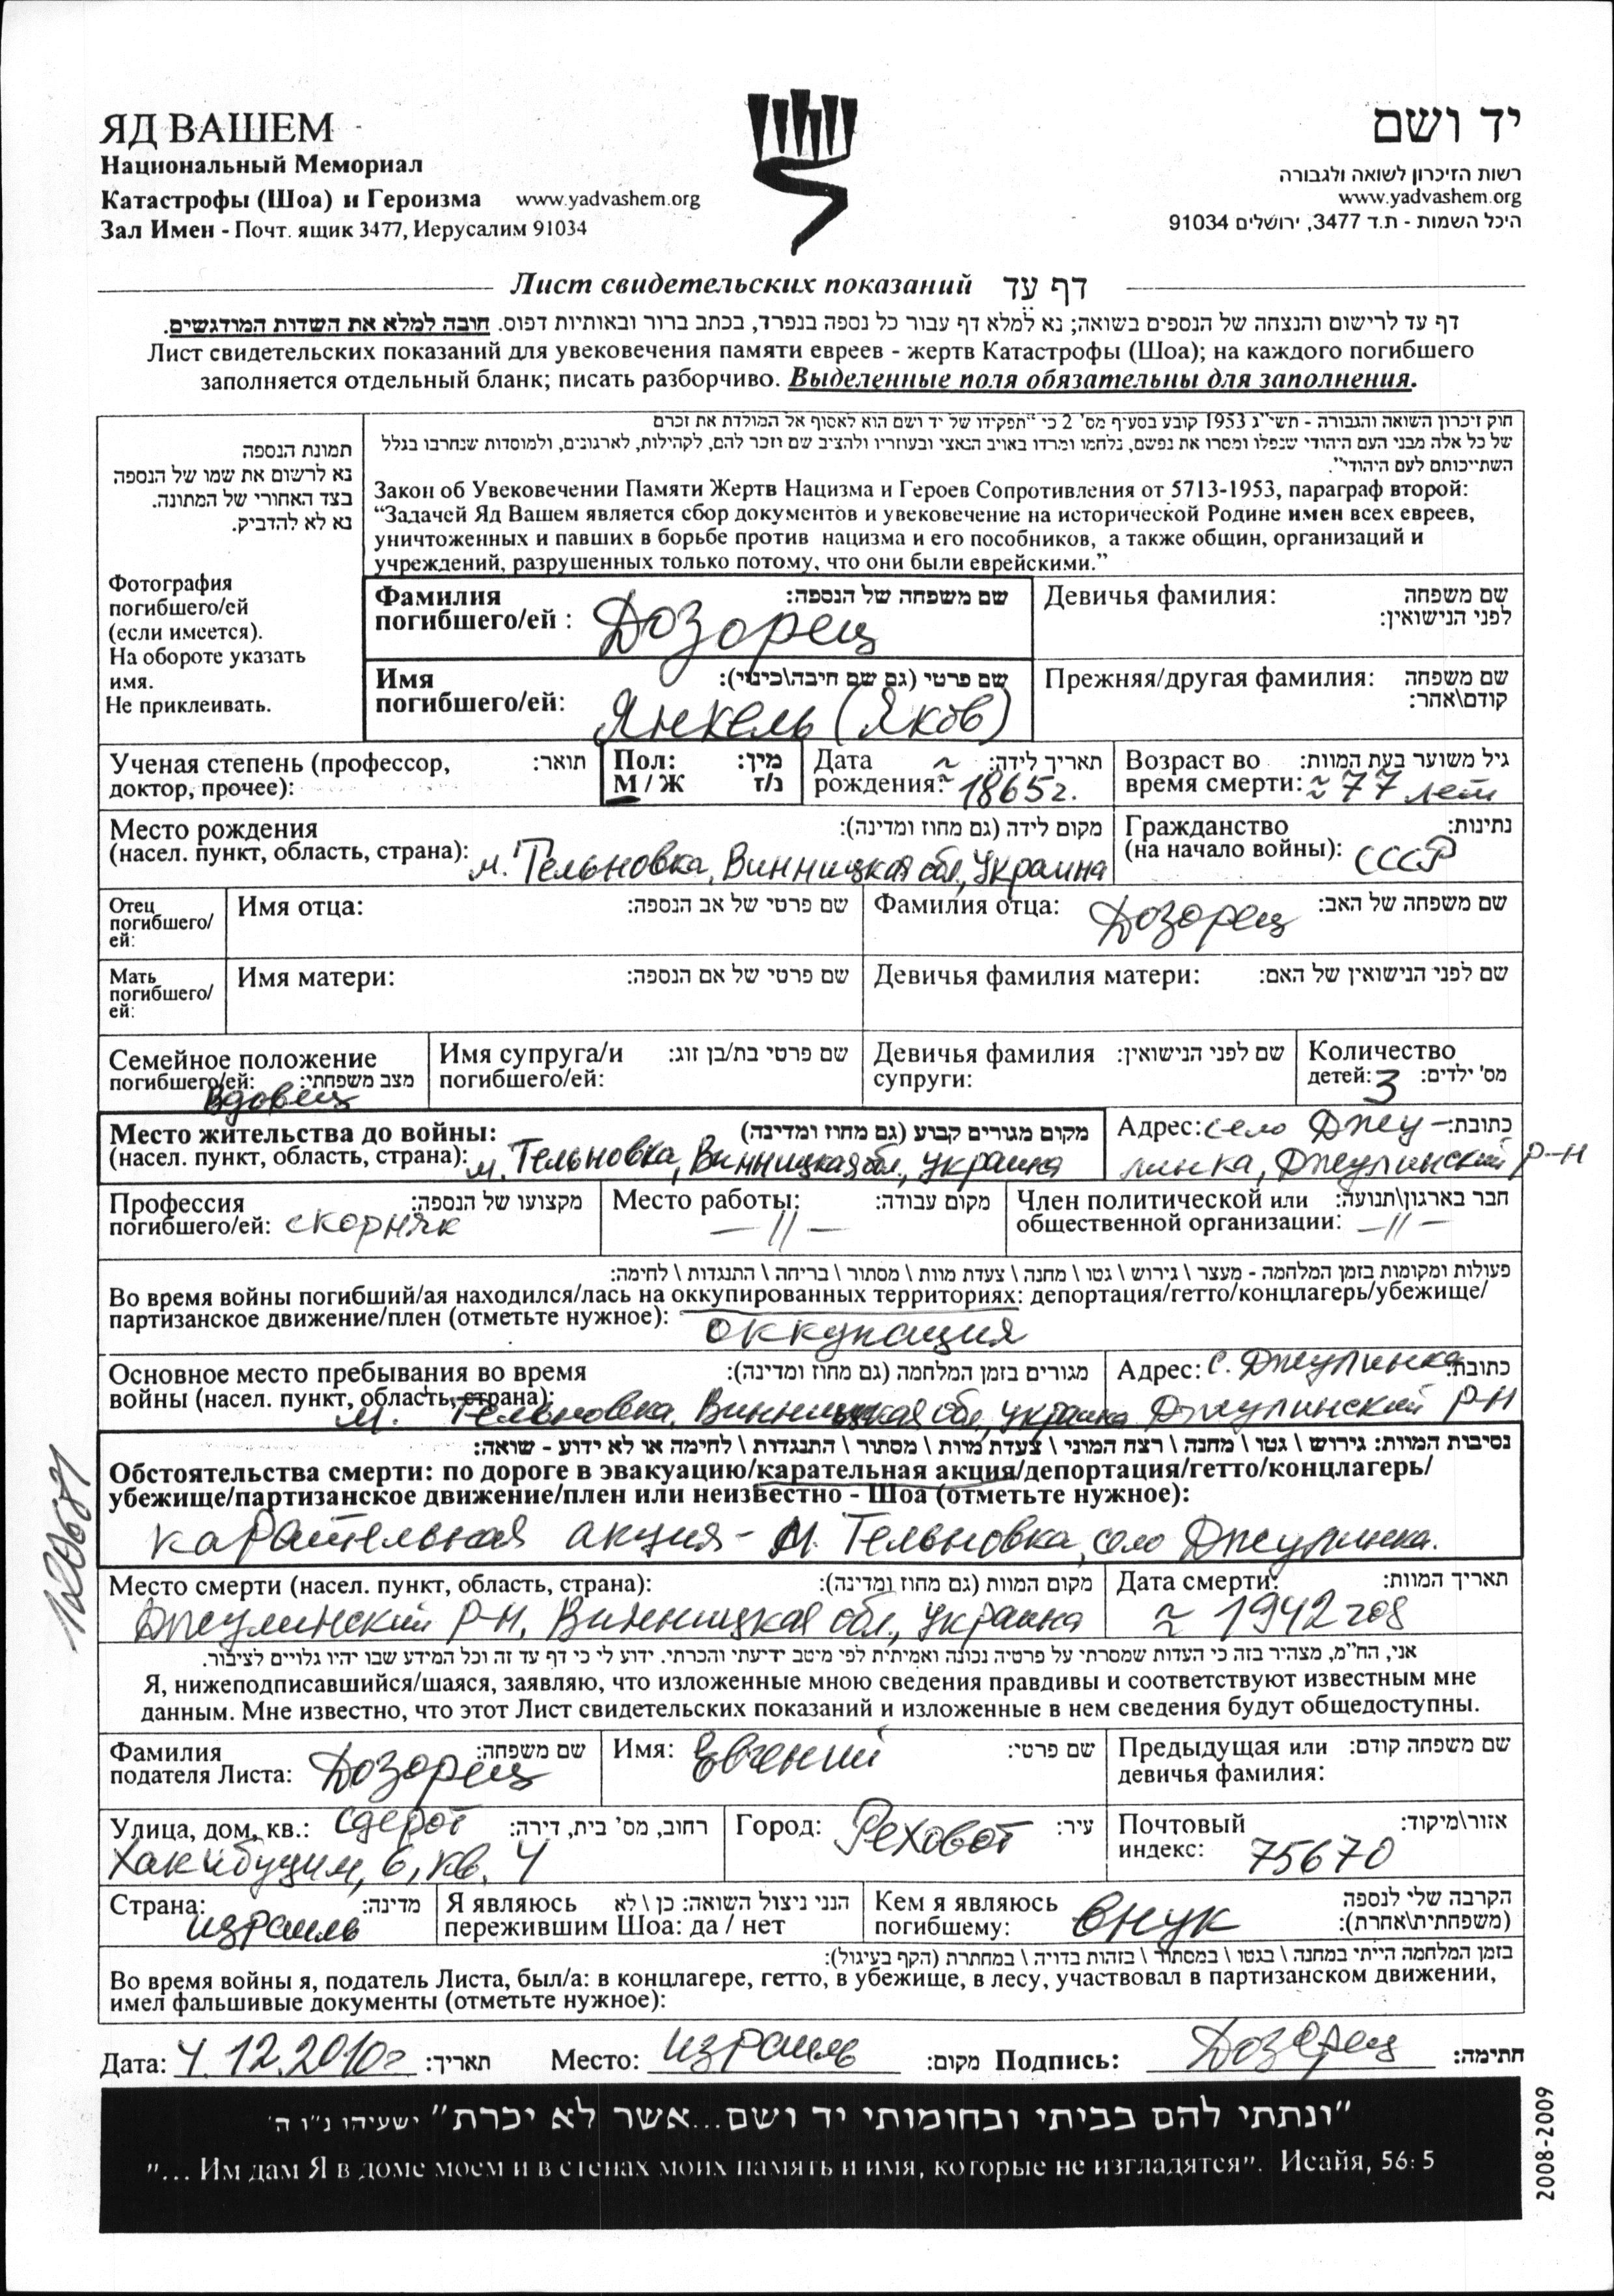 ЯД ВАШЕМ
Национальный Мемориал
Катастрофы (Шоа) и Героизма www.yadvashem.org
Зал Имен - Почт. ящик 3477, Иерусалим 91034
יד ושם
רשות הזיכרון לשואה ולגבורה
www.yadvashem.org
היכל השמות - ת.ד 3477, ירושלים 91034
Лист свидетельских показаний דף עד
דף עד לרישום והנצחה של הנספים בשואה; נא למלא דף עבור כל נספה בנפרד, בכתב ברור ובאותיות דפוס. חובה למלא את השדות המודגשים.
Лист свидетельских показаний для увековечения памяти евреев - жертв Катастрофы (Шоа); на каждого погибшего
заполняется отдельный бланк; писать разборчиво. Выделенные поля обязательны для заполнения.
תמונת הנספה
נא לרשום את שמו של הנספה
בצד האחורי של המתונה.
נא לא להדביק.
Фотография
погибшего/ей
(если имеется).
На обороте указать
имя.
Не приклеивать.
חוק זיכרון השואה והגבורה - תשי"ג 1953 קובע בסעיף מס' 2 כי "תפקידו של יד ושם הוא לאסוף אל המולדת את זכרם
של כל אלה מבני העם היהודי שנפלו ומסרו את נפשם, נלחמו ומרדו באויב הנאצי ובעוזריו ולהציב שם וזכר להם, לקהילות, לארגונים, ולמוסדות שנחרבו בגלל
השתייכותם לעם היהודי".
Закон об Увековечении Памяти Жертв Нацизма и Героев Сопротивления от 5713-1953, параграф второй:
“Задачей Яд Вашем является сбор документов и увековечение на исторической Родине имен всех евреев,
уничтоженных и павших в борьбе против нацизма и его пособников, а также общин, организаций и
учреждений, разрушенных только потому, что они были еврейскими.”
Фамилия שם משפחה של הנספה:
погибшего/ей : Дозорец
Девичья фамилия: שם משפחה
לפני הנישואין:
Имя שם פרטי (גם שם חיבה\כינוי):
погибшего/ей: Янкель (Яков)
Прежняя/другая фамилия: שם משפחה
קודם\אחר:
Ученая степень (профессор, תואר:
доктор, прочее):
Пол: מין:
М / Ж נ/ז
Дата תאריך לידה:
рождения: ≈ 1865г.
Возраст во גיל משוער בעת המוות:
время смерти: ≈ 77 лет
Место рождения מקום לידה (גם מחוז ומדינה):
(насел. пункт, область, страна): м. Тельновка, Винницкая обл., Украина
Гражданство נתינות:
(на начало войны): СССР
Отец
погибшего/
ей:
Имя отца: שם פרטי של אב הנספה:
Фамилия отца: Дозорец שם משפחה של האב:
Мать
погибшего/
ей:
Имя матери: שם פרטי של אם הנספה:
Девичья фамилия матери: שם לפני הנישואין של האם:
Семейное положение
погибшего/ей: מצב משפחתי:
Вдовец
Имя супруга/и שם פרטי בת/בן זוג:
погибшего/ей:
Девичья фамилия שם לפני הנישואין:
супруги:
Количество
детей: 3 מס' ילדים:
Место жительства до войны: מקום מגורים קבוע (גם מחוז ומדינה)
(насел. пункт, область, страна): м. Тельновка, Винницкая обл., Украина
Адрес: село Джу- כתובת:
линка, Джулинский р-н
Профессия מקצועו של הנספה:
погибшего/ей: скорняк
Место работы: מקום עבודה:
—//—
Член политической или חבר בארגון\תנועה:
общественной организации: —//—
פעולות ומקומות בזמן המלחמה - מעצר \ גירוש \ גטו \ מחנה \ צעדת מוות \ מסתור \ בריחה \ התנגדות \ לחימה:
Во время войны погибший/ая находился/лась на оккупированных территориях: депортация/гетто/концлагерь/убежище/
партизанское движение/плен (отметьте нужное): оккупация
Основное место пребывания во время מגורים בזמן המלחמה (גם מחוז ומדינה):
войны (насел. пункт, область, страна):
м. Тельновка, Винницкая обл., Украина
Адрес: с. Джулинка כתובת:
Джулинский р-н
נסיבות המוות: גירוש \ גטו \ מחנה \ רצח המוני \ צעדת מוות \ מסתור \ התנגדות \ לחימה או לא ידוע - שואה:
Обстоятельства смерти: по дороге в эвакуацию/карательная акция/депортация/гетто/концлагерь/
убежище/партизанское движение/плен или неизвестно - Шоа (отметьте нужное):
карательная акция - м. Тельновка, село Джулинка.
Место смерти (насел. пункт, область, страна): מקום המוות (גם מחוז ומדינה):
Джулинский р-н, Винницкая обл., Украина
Дата смерти: תאריך המוות:
≈ 1942 год
אני, הח"מ, מצהיר בזה כי העדות שמסרתי על פרטיה נכונה ואמיתית לפי מיטב ידיעתי והכרתי. ידוע לי כי דף עד זה וכל המידע שבו יהיו גלויים לציבור.
Я, нижеподписавшийся/шаяся, заявляю, что изложенные мною сведения правдивы и соответствуют известным мне
данным. Мне известно, что этот Лист свидетельских показаний и изложенные в нем сведения будут общедоступны.
Фамилия שם משפחה:
подателя Листа: Дозорец
Имя: Евгений שם פרטי:
Предыдущая или שם משפחה קודם:
девичья фамилия:
Улица, дом, кв.: Сдерот רחוב, מס' בית, דירה:
Хакибуцим, 6, кв. 4
Город: Реховот עיר:
Почтовый אזור\מיקוד:
индекс: 75670
Страна: מדינה:
Израиль
Я являюсь הנני ניצול השואה: כן \ לא
пережившим Шоа: да / нет
Кем я являюсь הקרבה שלי לנספה
погибшему: внук (משפחתית\אחרת):
בזמן המלחמה הייתי במחנה \ בגטו \ במסתור \ בזהות בדויה \ במחתרת (הקף בעיגול):
Во время войны я, податель Листа, был/а: в концлагере, гетто, в убежище, в лесу, участвовал в партизанском движении,
имел фальшивые документы (отметьте нужное):
Дата: 4.12.2010г תאריך: Место: Израиль מקום: Подпись: Дозорец חתימה:
"ונתתי להם בביתי ובחומותי יד ושם...אשר לא יכרת" ישעיהו נ"ו ה'
"... Им дам Я в доме моем и в стенах моих память и имя, которые не изгладятся". Исайя, 56: 5
2008-2009